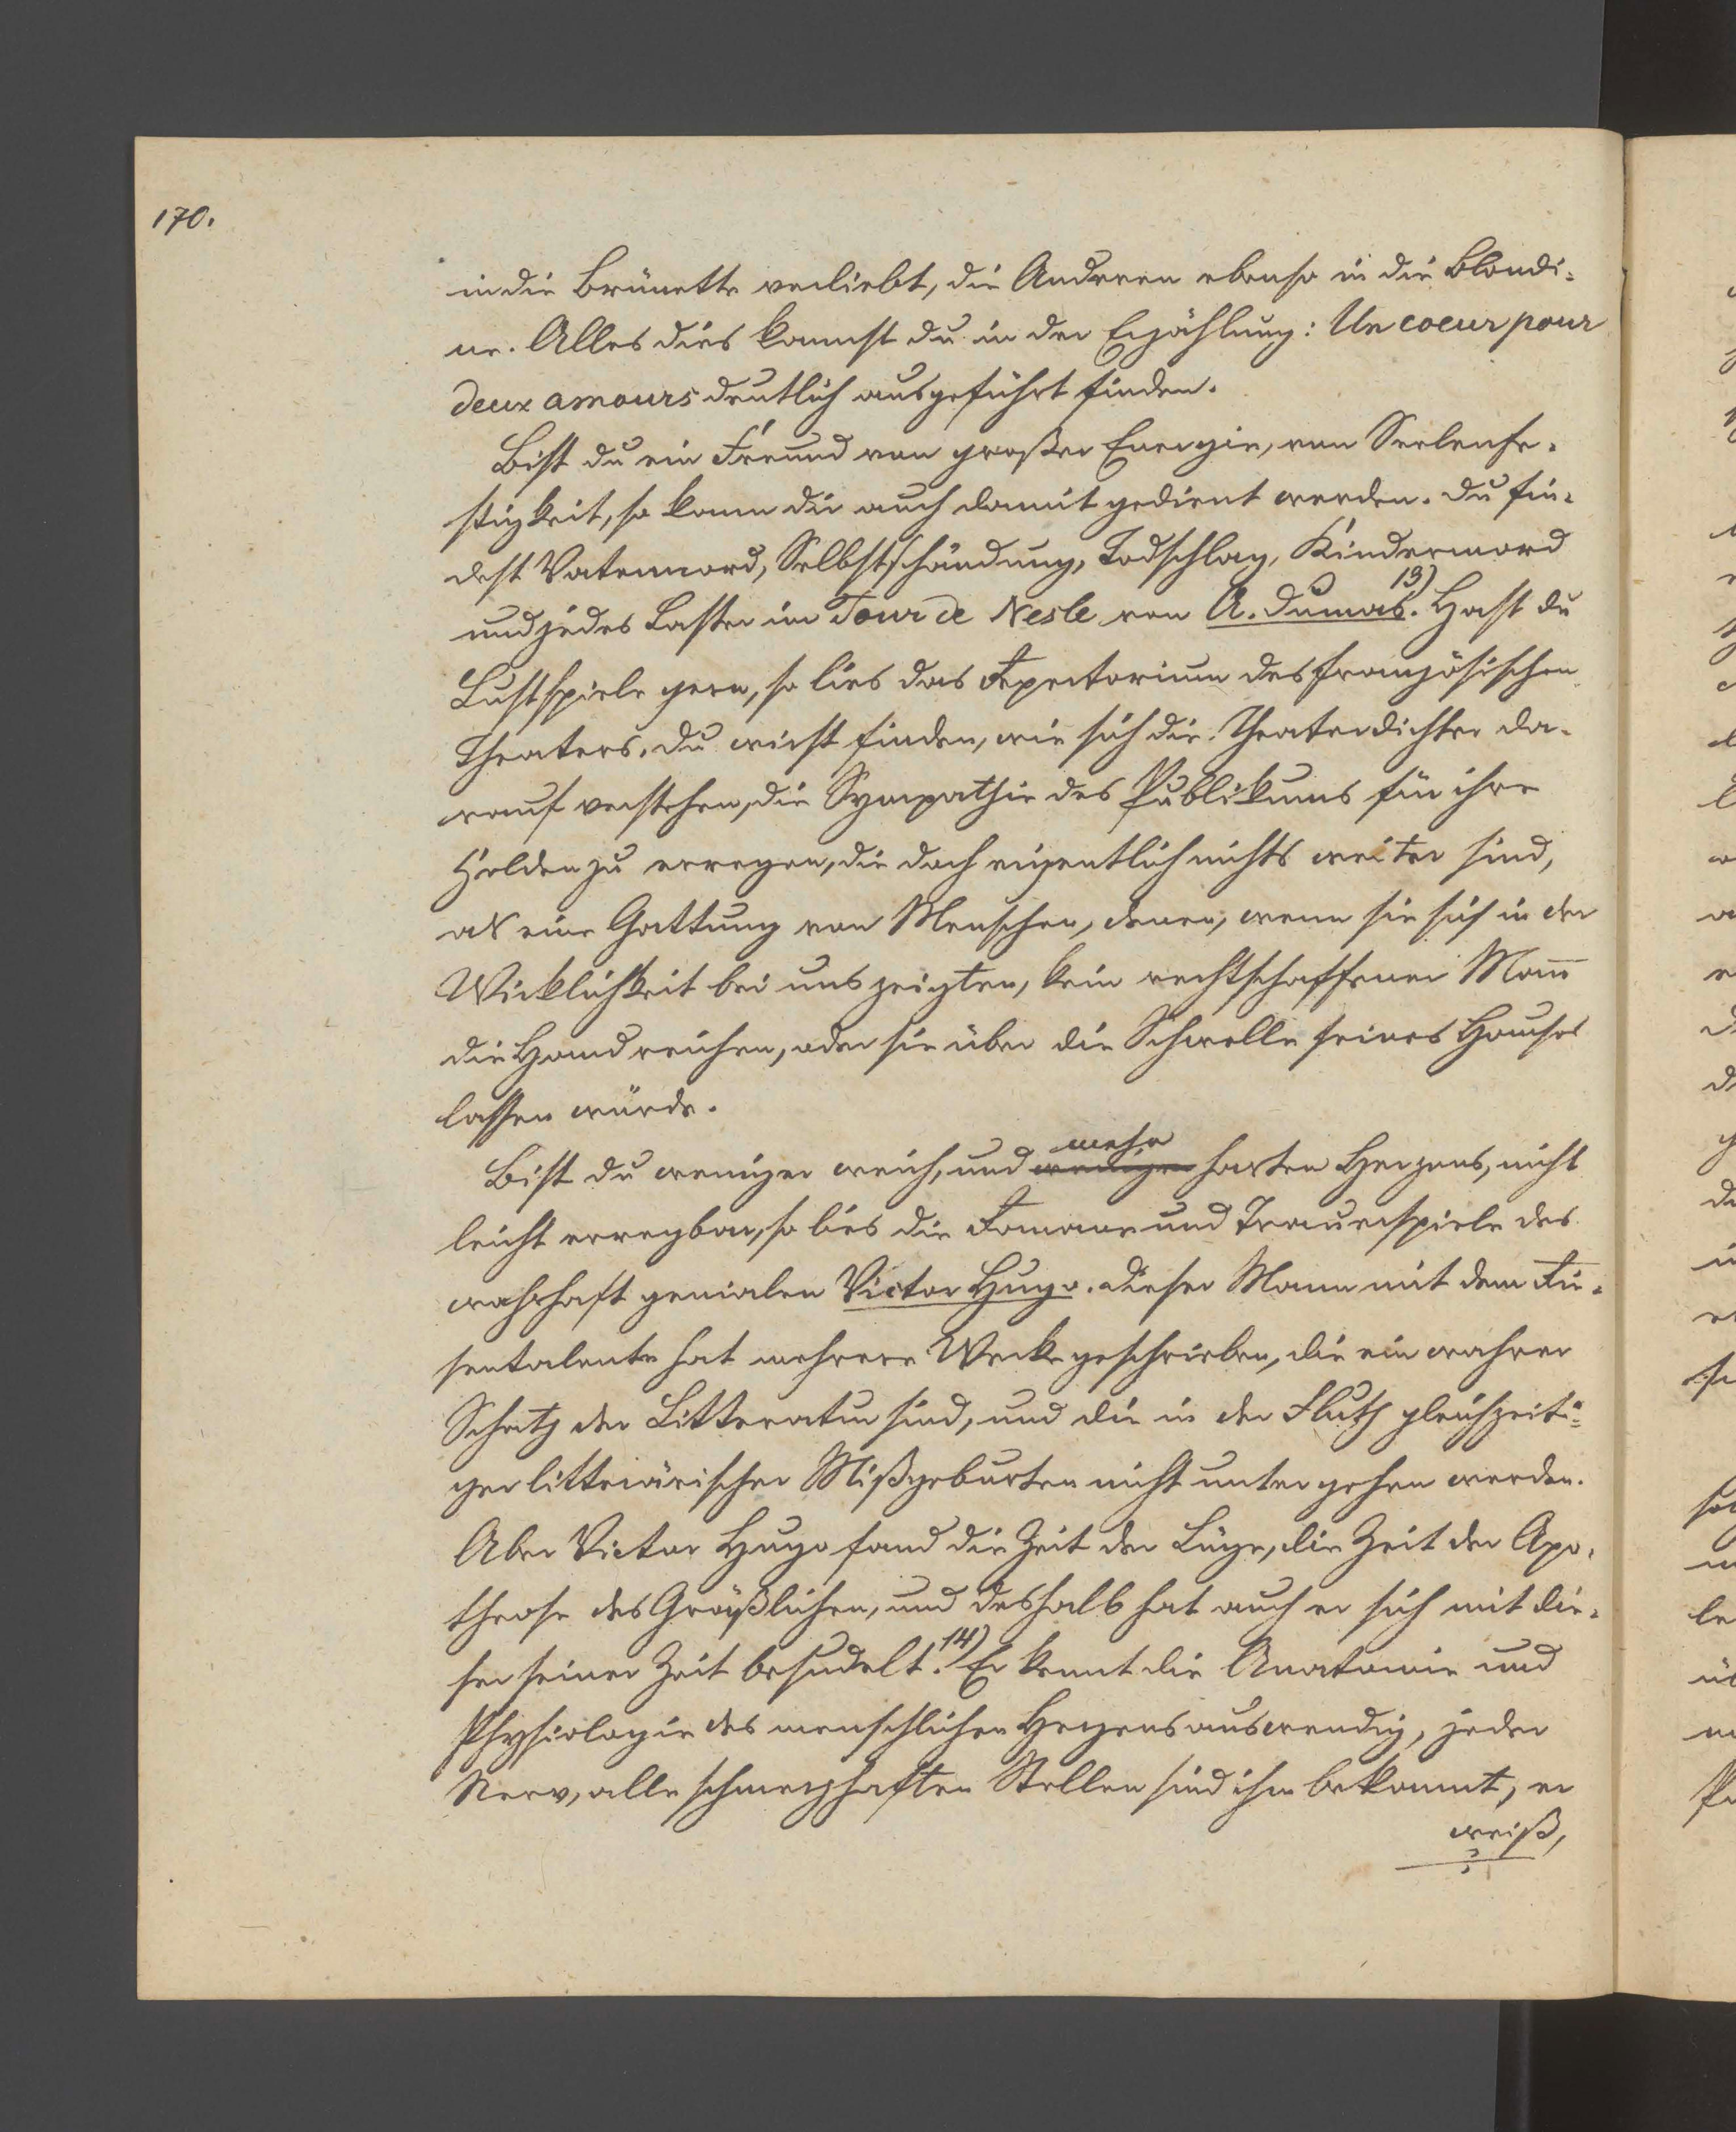 170.
in die Brünette verliebt, die Anderen ebenso in die Blondi-
ne. Alles dies kannst du in der Erzählung: Un coeur pour
deux amours deutlich ausgeführt finden.
Bist du ein Freund von großer Energie, von Seelenfe-
stigkeit, so kann dir auch damit gedient werden. Du fin-
dest Vatermord, Selbstschändung, Todschlag, Kindermord
und jedes Laster im Tour de Nesle von A. Dumas. 13) Hast du
Lustspiele gern, so lies das Repertorium des französischen
Theaters. Du wirst finden, wie sich die Theaterdichter da-
rauf verstehen, die Sympathie des Publikums für ihre
Helden zu erregen, die doch eigentlich nichts weiter sind,
als eine Gattung von Menschen, denen, wenn sie sich in der
Wirklichkeit bei uns zeigten, kein rechtschaffener Mann
die Hand reichen, oder sie über die Schwelle seines Hauses
lassen würde.
Bist du weniger weich, und weniger mehr harten Herzens, nicht
leicht erregbar, so lies die Romane und Trauerspiele des
wahrhaft genialen Victor Hugo. Dieser Mann mit dem Rie-
sentalente hat mehrere Werke geschrieben, die ein wahrer
Schatz der Litteratur sind, und die in der Fluth gleichzeiti-
ger litterärischer Mißgeburten nicht untergehen werden.
Aber Victor Hugo fand die Zeit der Lüge, die Zeit der Apo-
theose des Gräßlichen, und deshalb hat auch er sich mit die-
ser seiner Zeit besudelt. 14) Er kennt die Anatomie und
Physiologie des menschlichen Herzens auswendig, jeder
Nerv, alle schmerzhaften Stellen sind ihm bekannt, er
weiß,